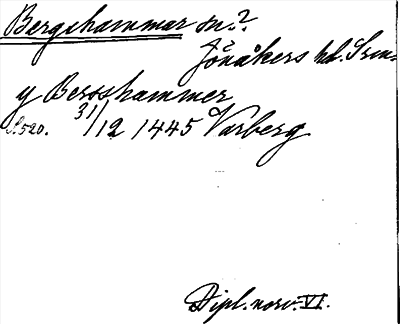 Bergshammar sn.?
Jönåkers hd. Srm.
y Bersshammer
S. 520. 31/12 1445 Varberg
Dipl. norv. VI.